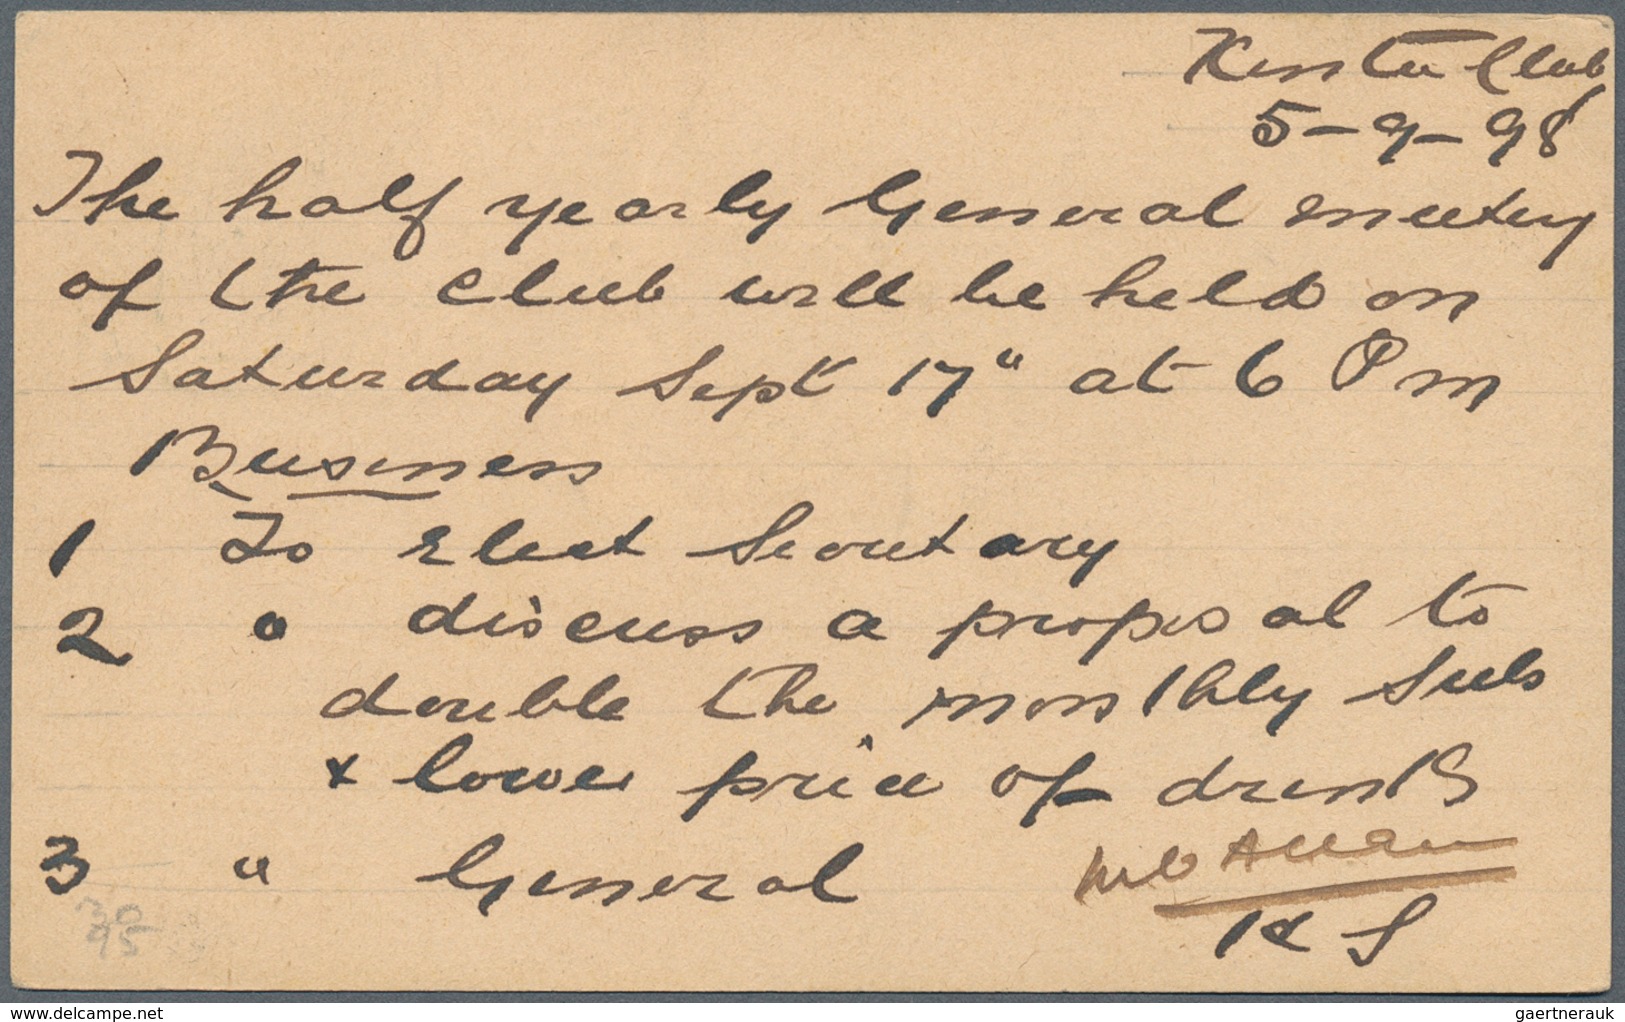 Kinta Club
5-9-98
The half yearly General meeting
of the Club will be held on
Saturday Sept 17" at 6 P m
Business
1 To Elect Secretary
2 " discuss a proposal to
double the monthly Subs
& lower price of drinks
3 " General
Allan
S
30
95
delcampe.net
gaertnerauk